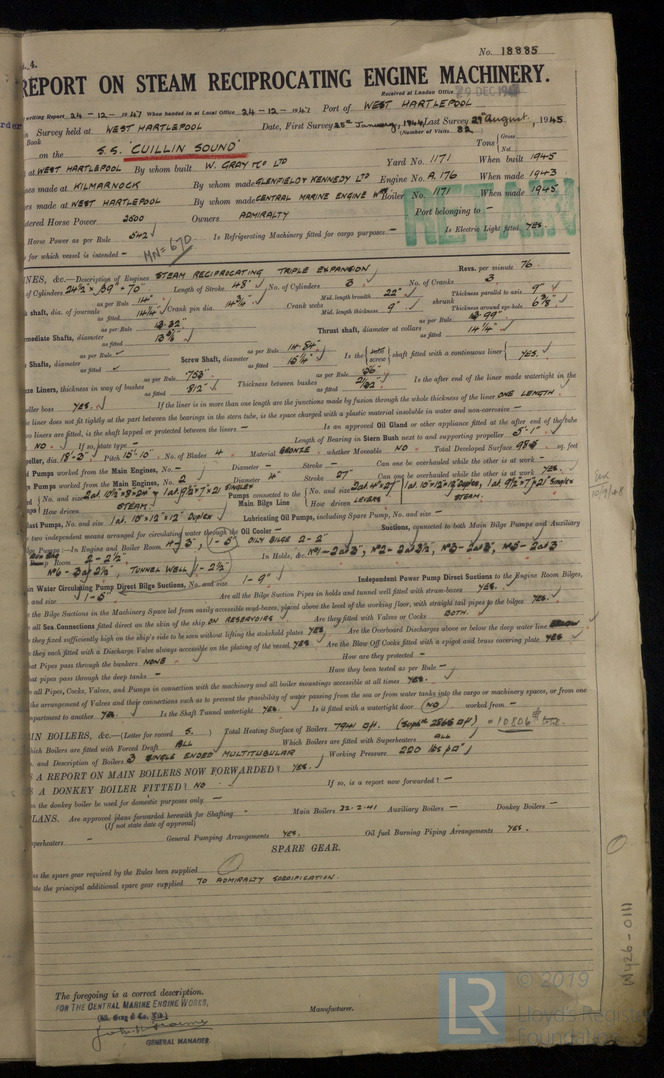 No. 18885
REPORT ON STEAM RECIPROCATING ENGINE MACHINERY.
Received at London Office 29 DEC 1947
writing Report 24-12-1947 When handed in at Local Office 24-12-1947 Port of WEST HARTLEPOOL
Survey held at WEST HARTLEPOOL Date, First Survey 25th January, 1944 Last Survey 29th August, 1945
Book (Number of Visits 82
on the S.S. 'CUILLIN SOUND' Tons Gross Net
at WEST HARTLEPOOL By whom built W. GRAY & CO LTD Yard No. 1171 When built 1945
es made at KILMARNOCK By whom made GLENFIELD & KENNEDY LTD Engine No. A.176 When made 1943
rs made at WEST HARTLEPOOL By whom made CENTRAL MARINE ENGINE WKS Boiler No. 1171 When made 1945
RETAIN
tered Horse Power 2500 Owners ADMIRALTY Port belonging to -
Horse Power as per Rule 542 Is Refrigerating Machinery fitted for cargo purposes - Is Electric Light fitted YES.
MN = 670
e for which vessel is intended -
INES, &c.—Description of Engines STEAM RECIPROCATING TRIPLE EXPANSION Revs. per minute 76.
of Cylinders 24½" x 39" x 70" Length of Stroke 48" No. of Cylinders 3 No. of Cranks 3
shaft, dia. of journals as per Rule 14" as fitted 14¼" Crank pin dia. 14¾" Crank webs Mid. length breadth 22" Mid. length thickness 9" shrunk Thickness parallel to axis 9" Thickness around eye-hole 6⅜"
mediate Shafts, diameter as per Rule 13.32" as fitted Thrust shaft, diameter at collars as per Rule 13.99" as fitted 14¼"
Shafts, diameter as per Rule as fitted Screw Shaft, diameter as per Rule 14.84" as fitted 15¼" Is the screw shaft fitted with a continuous liner YES.
nze Liners, thickness in way of bushes as per Rule .753" as fitted .812" Thickness between bushes as per Rule .56" as fitted 21/32" Is the after end of the liner made watertight in the
eller boss YES. If the liner is in more than one length are the junctions made by fusion through the whole thickness of the liner ONE LENGTH.
he liner does not fit tightly at the part between the bearings in the stern tube, is the space charged with a plastic material insoluble in water and non-corrosive -
wo liners are fitted, is the shaft lapped or protected between the liners - Is an approved Oil Gland or other appliance fitted at the after end of the tube
NO. If so, state type - Length of Bearing in Stern Bush next to and supporting propeller 5'-1"
peller, dia. 18'-3" Pitch 15'-10" No. of Blades 4 Material BRONZE whether Moveable NO Total Developed Surface 98.5 sq. feet
d Pumps worked from the Main Engines, No. - Diameter - Stroke - Can one be overhauled while the other is at work -
e Pumps worked from the Main Engines, No. 2 Diameter 4" Stroke 27" Can one be overhauled while the other is at work YES.
No. and size 2 at 10½" x 8" x 24" & 1 at 9½" x 7" x 21" SINGLES Pumps connected to the Main Bilge Line No. and size 2 at 4" x 27" 1 at 10" x 12" x 12" Duplex, 1 at 9½" x 7" x 21" Simplex
How driven STEAM. How driven LEVERS STEAM.
last Pumps, No. and size 1 at 10" x 12" x 12" DUPLEX Lubricating Oil Pumps, including Spare Pump, No. and size -
two independent means arranged for circulating water through the Oil Cooler - Suctions, connected to both Main Bilge Pumps and Auxiliary
lge Pumps:—In Engine and Boiler Room 4-3", 1-5" OILY BILGE 2-2"
Pump Room 2-2½" In Holds, &c. No1-2 at 3", No2-2 at 3½", No3-2 at 3", No5-2 at 3"
No6-3 at 2½", TUNNEL WELL 1-2½"
in Water Circulating Pump Direct Bilge Suctions, No. and size 1-9" Independent Power Pump Direct Suctions to the Engine Room Bilges,
and size 1-5" Are all the Bilge Suction Pipes in holds and tunnel well fitted with strum-boxes YES.
the Bilge Suctions in the Machinery Space led from easily accessible mud-boxes, placed above the level of the working floor, with straight tail pipes to the bilges YES.
all Sea Connections fitted direct on the skin of the ship ON RESERVOIRS Are they fitted with Valves or Cocks BOTH.
they fixed sufficiently high on the ship's side to be seen without lifting the stokehold plates YES Are the Overboard Discharges above or below the deep water line BELOW
they each fitted with a Discharge Valve always accessible on the plating of the vessel YES Are the Blow Off Cocks fitted with a spigot and brass covering plate YES
at Pipes pass through the bunkers NONE How are they protected -
at pipes pass through the deep tanks - Have they been tested as per Rule -
all Pipes, Cocks, Valves, and Pumps in connection with the machinery and all boiler mountings accessible at all times YES.
the arrangement of Valves and their connections such as to prevent the possibility of water passing from the sea or from water tanks into the cargo or machinery spaces, or from one
mpartment to another YES. Is the Shaft Tunnel watertight YES. Is it fitted with a watertight door NO worked from -
IN BOILERS, &c.—(Letter for record S. ) Total Heating Surface of Boilers 7941 □ft. (Supht 2865 □ft) = 10806
hich Boilers are fitted with Forced Draft ALL Which Boilers are fitted with Superheaters ALL
and Description of Boilers 3 SINGLE ENDED MULTITUBULAR Working Pressure 220 lbs p □"
S A REPORT ON MAIN BOILERS NOW FORWARDED? YES.
S A DONKEY BOILER FITTED? NO If so, is a report now forwarded? -
n the donkey boiler be used for domestic purposes only -
LANS. Are approved plans forwarded herewith for Shafting - Main Boilers 22.2.41 Auxiliary Boilers - Donkey Boilers -
(If not state date of approval)
uperheaters - General Pumping Arrangements YES. Oil fuel Burning Piping Arrangements YES.
SPARE GEAR.
as the spare gear required by the Rules been supplied
ate the principal additional spare gear supplied TO ADMIRALTY SPECIFICATION.
10/9/48
W426-0111
The foregoing is a correct description.
FOR THE CENTRAL MARINE ENGINE WORKS,
(Wm. Gray & Co. Ltd.)
Manufacturer.
GENERAL MANAGER.
LR © 2019
Lloyd's Register
Foundation